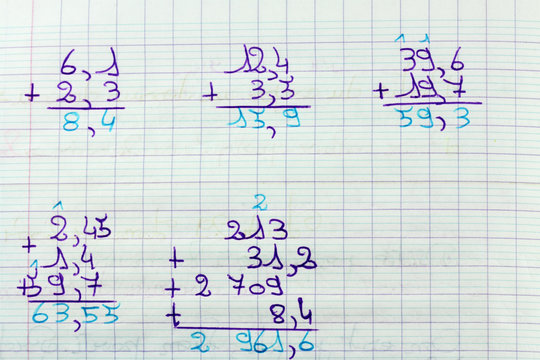 6,1
+ 2,3
8,4
12,4
+ 3,5
15,9
1 1
39,6
+ 19,7
59,3
1
2,45
+ 1,4
1
+ 59,7
63,55
2
213
+ 31,2
+ 2 709
+ 8,4
2 961,6